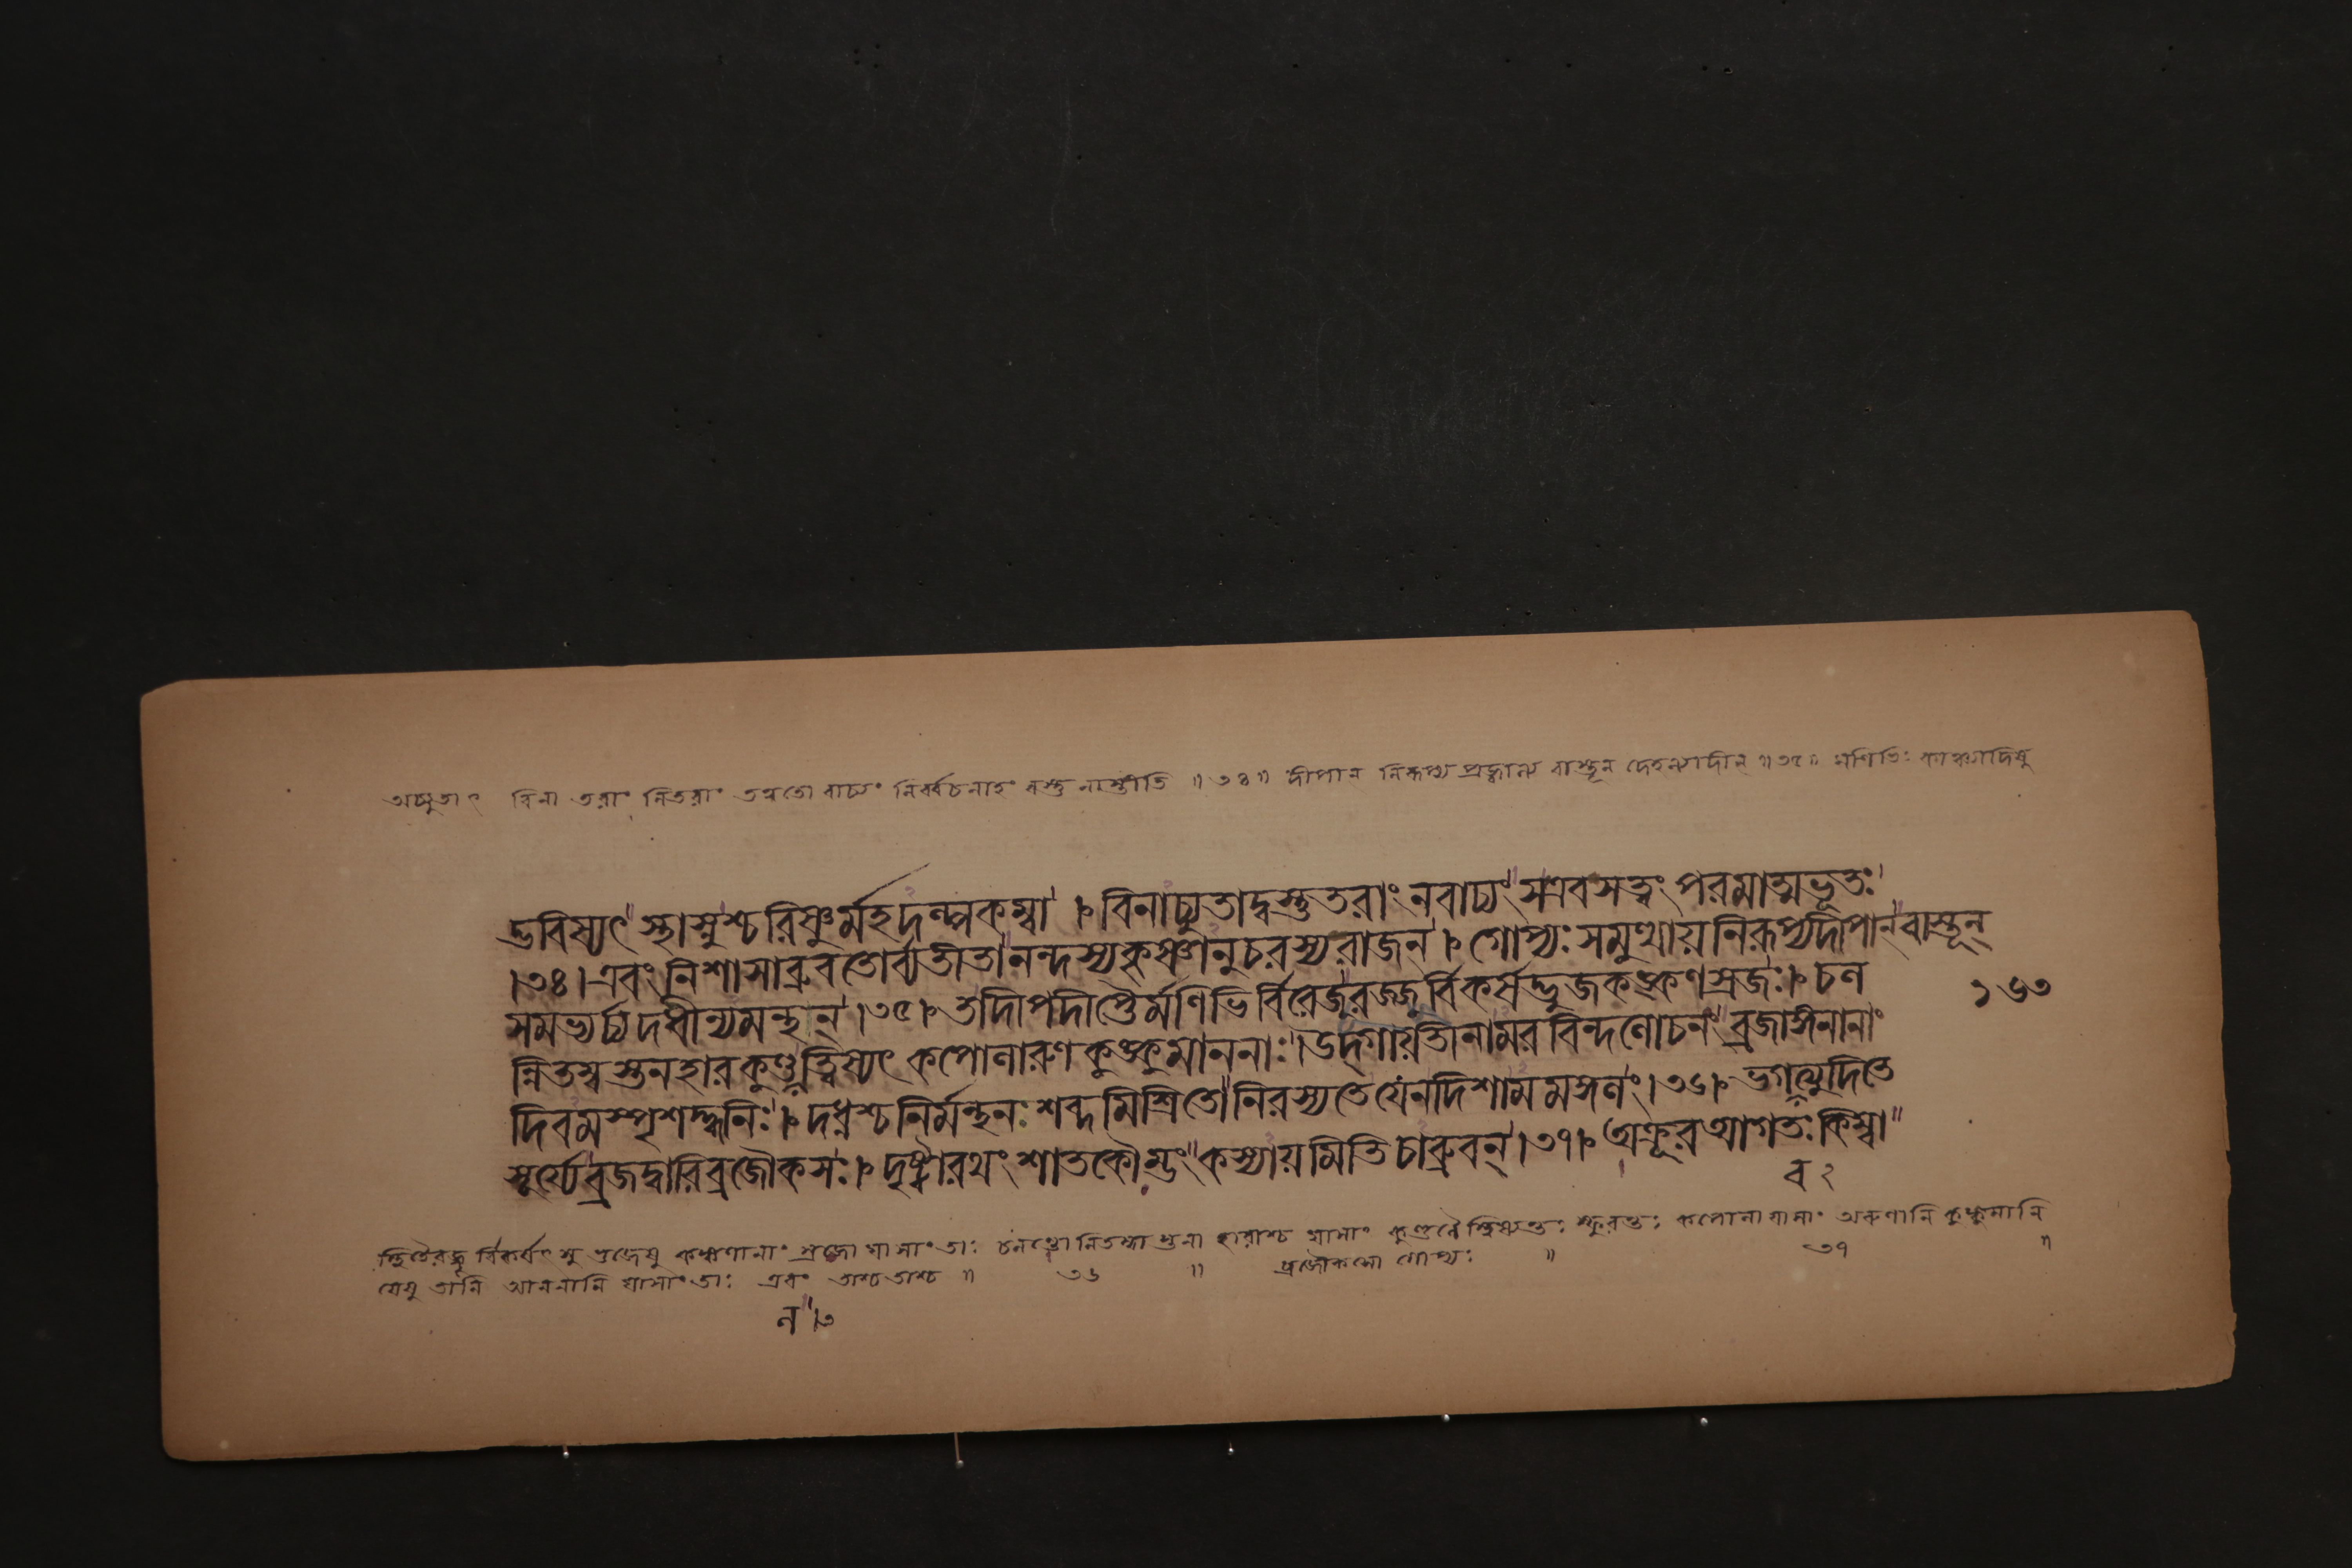 অচ্যুতাৎ বিনা তরাং নিতরাং তত্ত্বতো বাচ্যং নির্ব্বচনার্হং বস্তু নাস্তীতি ॥ ৩৪ ॥ দীপান নিরূপ্য প্রজ্বাল্য বাস্তূন দেহল্যাদীন্ ॥ ৩৫ ॥ মণিভিঃ কাঞ্চ্যাদিষু
দ্ভবিষ্যৎ স্থাস্নুশ্চরিষ্ণুর্মহদল্পকম্বা । বিনাচ্যুতাদ্বস্তুতরাং নবাচ্যং সএবসর্ব্বং পরমাত্মভূতঃ
।৩৪। এবং নিশাসাব্রুবতোর্ব্যতীতা নন্দস্যকৃষ্ণানুচরস্যরাজন । গোপ্যঃ সমুত্থায়নিরূপ্যদিপান বাস্তূন্
সমভ্যর্চ্চ্যদধীন্যমন্থন্ ।৩৫। তদিপদীপ্তৈর্মণিভির্বিরেজুরজ্জুর্বিকর্ষদ্ভুজকঙ্কণস্রজঃ । চল
ন্নিতম্বস্তনহারকুণ্ডলত্বিষ্যৎ কপোলারুণকুঙ্কুমাননাঃ । উদ্গায়তীনামরবিন্দলোচনং ব্রজাঙ্গনানাং
দিবমস্পৃশদ্ধ্বনিঃ । দধ্নশ্চনির্মন্থনঃ শব্দমিশ্রিতো নিরস্যতেযেনদিশামমঙ্গলং ।৩৬। ভগবত্যুদিতে
সূর্য্যে ব্রজদ্বারিব্রজৌকসঃ । দৃষ্ট্বারথং শাতকৌম্ভং কস্যায়মিতিচাব্রুবন্ ।৩৭। অক্রূরআগতঃ কিম্বা
১৬৩
ব ২
বিকর্ষৎসু ভুজেষু কঙ্কণানাং স্রজো যাসাং তাঃ চলন্তো নিতম্বা স্তনা হারাশ্চ যাসাং কুণ্ডলৈ স্ত্বিষ্যন্তঃ স্ফুরন্তঃ কপোলা যাসাং অরুণানি কুঙ্কুমানি
যেষু তানি আননানি যাসাং তাঃ এবং তাশ্চ তাশ্চ ॥ ৩৬ ॥ ব্রজৌকসো গোপ্যঃ ॥ ৩৭ ॥
ল ।৩